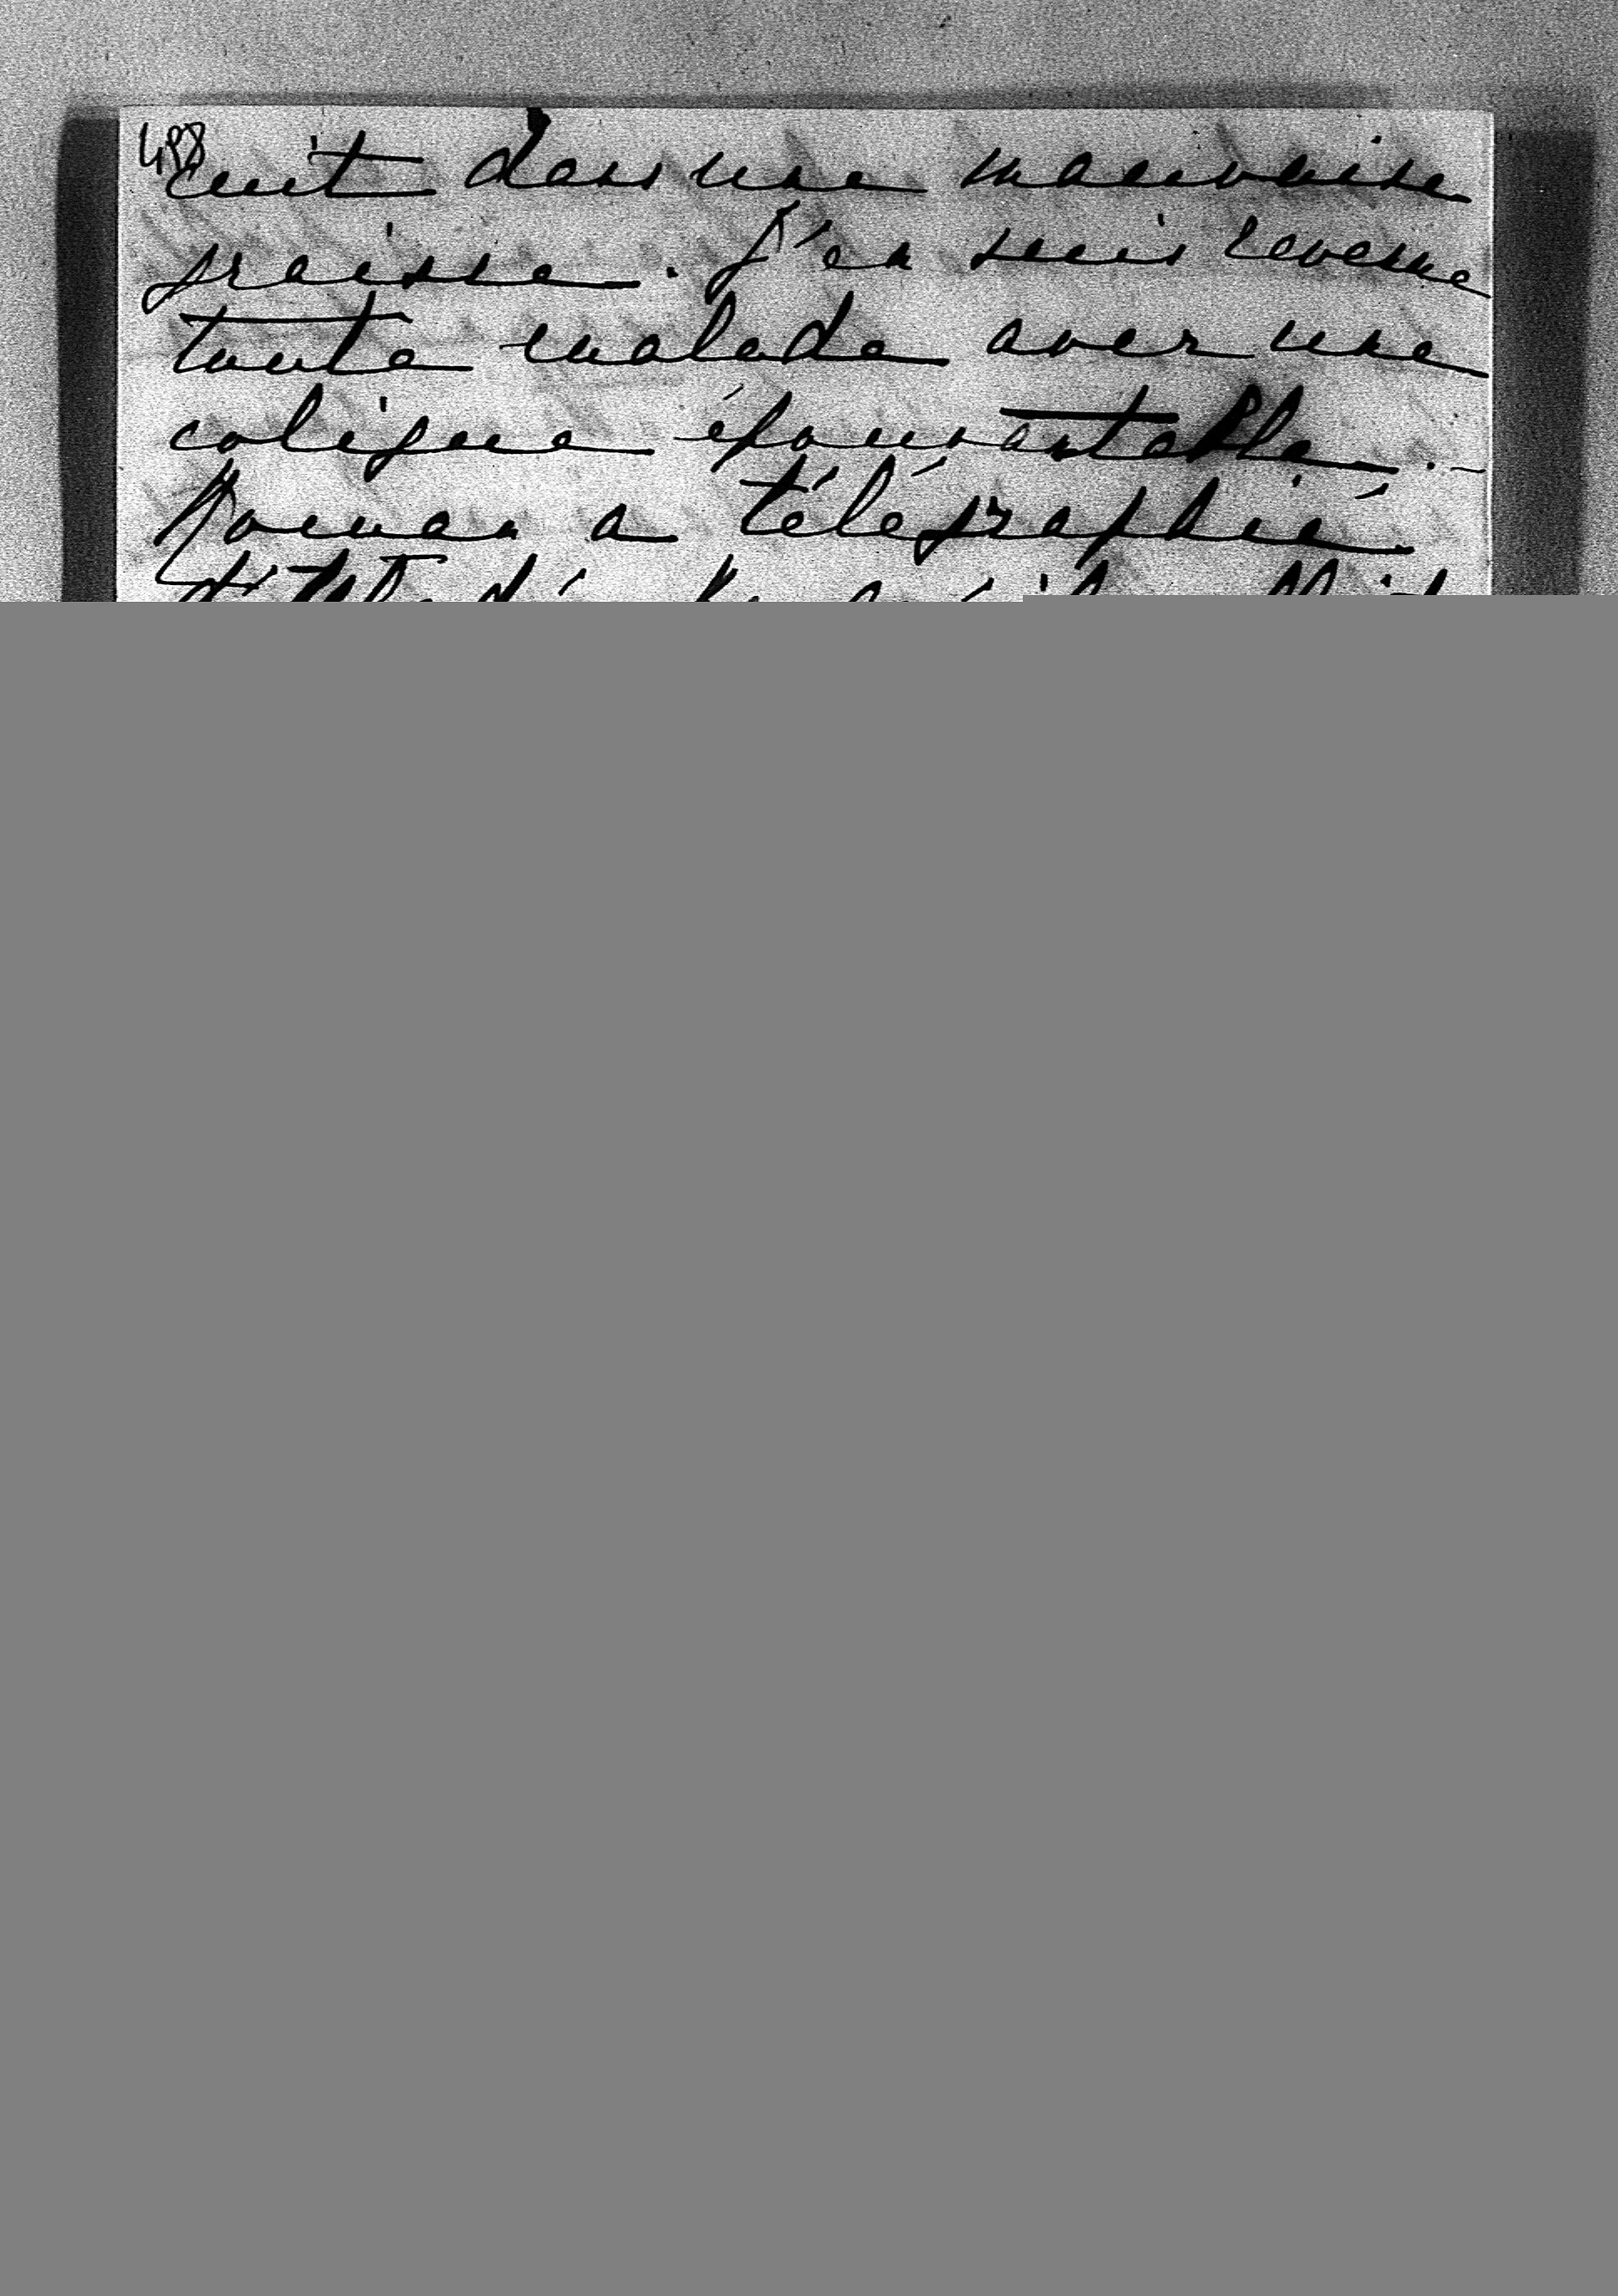 488
cuit dans une mauvaise
graisse. J'en suis revenue
toute malade avec une
colique épouvantable. -
a télégraphié.